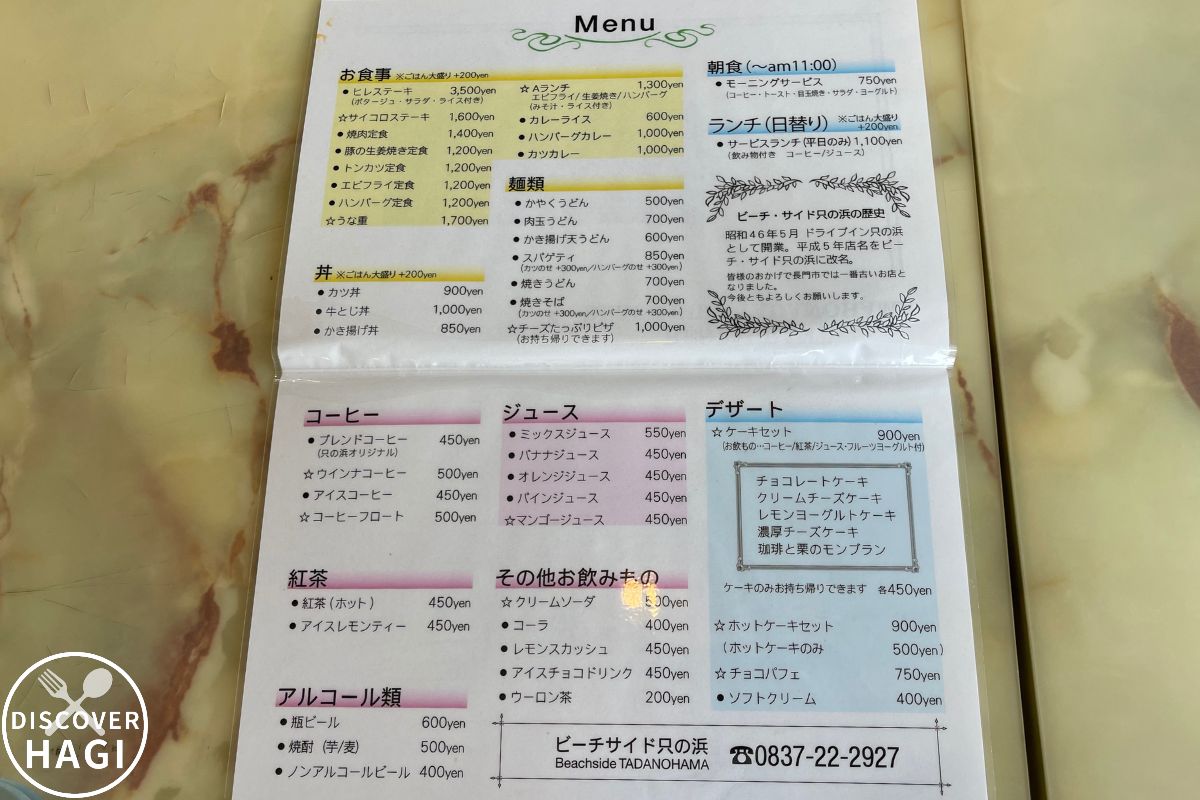 Menu
お食事 ※ごはん大盛り +200yen
● ヒレステーキ 3,500yen
(ポタージュ・サラダ・ライス付き)
☆サイコロステーキ 1,600yen
● 焼肉定食 1,400yen
● 豚の生姜焼き定食 1,200yen
● トンカツ定食 1,200yen
● エビフライ定食 1,200yen
● ハンバーグ定食 1,200yen
☆うな重 1,700yen
☆ Aランチ 1,300yen
エビフライ/生姜焼き/ハンバーグ
(みそ汁・ライス付き)
● カレーライス 600yen
● ハンバーグカレー 1,000yen
● カツカレー 1,000yen
丼 ※ごはん大盛り +200yen
● カツ丼 900yen
● 牛とじ丼 1,000yen
● かき揚げ丼 850yen
麺類
● かやくうどん 500yen
● 肉玉うどん 700yen
● かき揚げ天うどん 600yen
● スパゲティ 850yen
(カツのせ +300yen/ハンバーグのせ +300yen)
● 焼きうどん 700yen
● 焼きそば 700yen
(カツのせ +300yen/ハンバーグのせ +300yen)
☆チーズたっぷりピザ 1,000yen
(お持ち帰りできます)
朝食(〜am11:00)
● モーニングサービス 750yen
(コーヒー・トースト・目玉焼き・サラダ・ヨーグルト)
ランチ(日替り) ※ごはん大盛り
+200yen
● サービスランチ(平日のみ) 1,100yen
(飲み物付き コーヒー/ジュース)
ビーチ・サイド只の浜の歴史
昭和46年5月 ドライブイン只の浜
として開業。平成5年店名をビー
チ・サイド只の浜に改名。
皆様のおかげで長門市では一番古いお店と
なりました。
今後ともよろしくお願いします。
コーヒー
● ブレンドコーヒー 450yen
(只の浜オリジナル)
☆ウインナコーヒー 500yen
● アイスコーヒー 450yen
☆コーヒーフロート 500yen
紅茶
● 紅茶(ホット) 450yen
● アイスレモンティー 450yen
アルコール類
● 瓶ビール 600yen
● 焼酎 (芋/麦) 500yen
● ノンアルコールビール 400yen
ジュース
● ミックスジュース 550yen
● バナナジュース 450yen
● オレンジジュース 450yen
● パインジュース 450yen
☆マンゴージュース 450yen
その他お飲みもの
☆クリームソーダ 500yen
● コーラ 400yen
● レモンスカッシュ 450yen
● アイスチョコドリンク 450yen
● ウーロン茶 200yen
デザート
☆ケーキセット 900yen
(お飲もの…コーヒー/紅茶/ジュース・フルーツヨーグルト付)
チョコレートケーキ
クリームチーズケーキ
レモンヨーグルトケーキ
濃厚チーズケーキ
珈琲と栗のモンブラン
ケーキのみお持ち帰りできます 各450yen
☆ホットケーキセット 900yen
(ホットケーキのみ 500yen)
☆チョコパフェ 750yen
● ソフトクリーム 400yen
ビーチサイド只の浜
Beachside TADANOHAMA
☎0837-22-2927
DISCOVER
HAGI